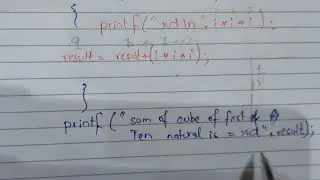 {
printf("%d\n", i*i*i);
result = result+(i*i*i);
1
8
}
printf("sum of cube of first of
Ten natural is = %d", result);